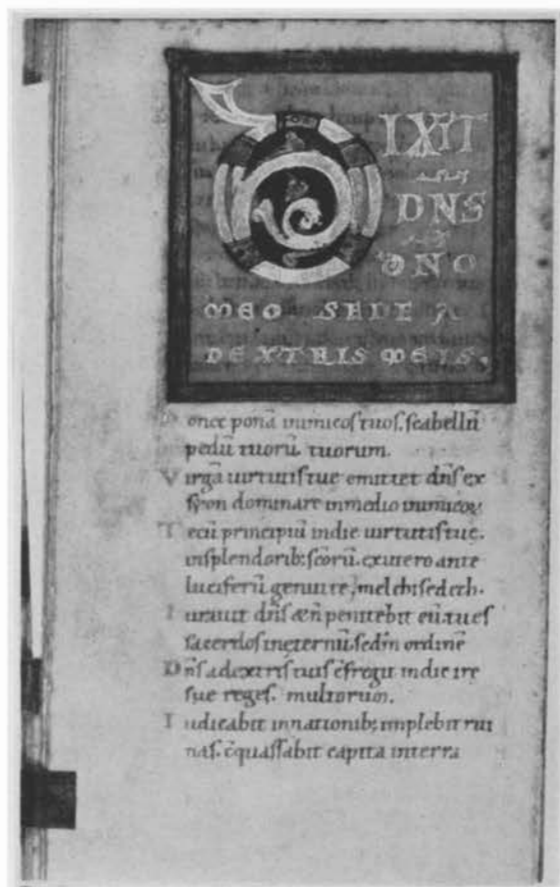 DIXIT
DNS
DNO
MEO SEDE A
DEXTRIS MEIS.
Donec ponā inimicos tuos. scabellū
pedū tuorū. tuorum.
Virgā uirtutis tue emittet dn̄s ex
syon dominare inmedio inimicoꝝ
Tecū principiū indie uirtutis tue.
insplendorib; sc̄orū. exutero ante
luciferū genui te, melchisedech.
Iurauit dn̄s & n̄ penitebit eū. tu es
sacerdos ineternū. sedm̄ ordinē
Dn̄s adextris tuis c̄fregit indie ire
sue reges. multorum.
Iudicabit innationib; implebit rui
nas. c̄quassabit capita interra